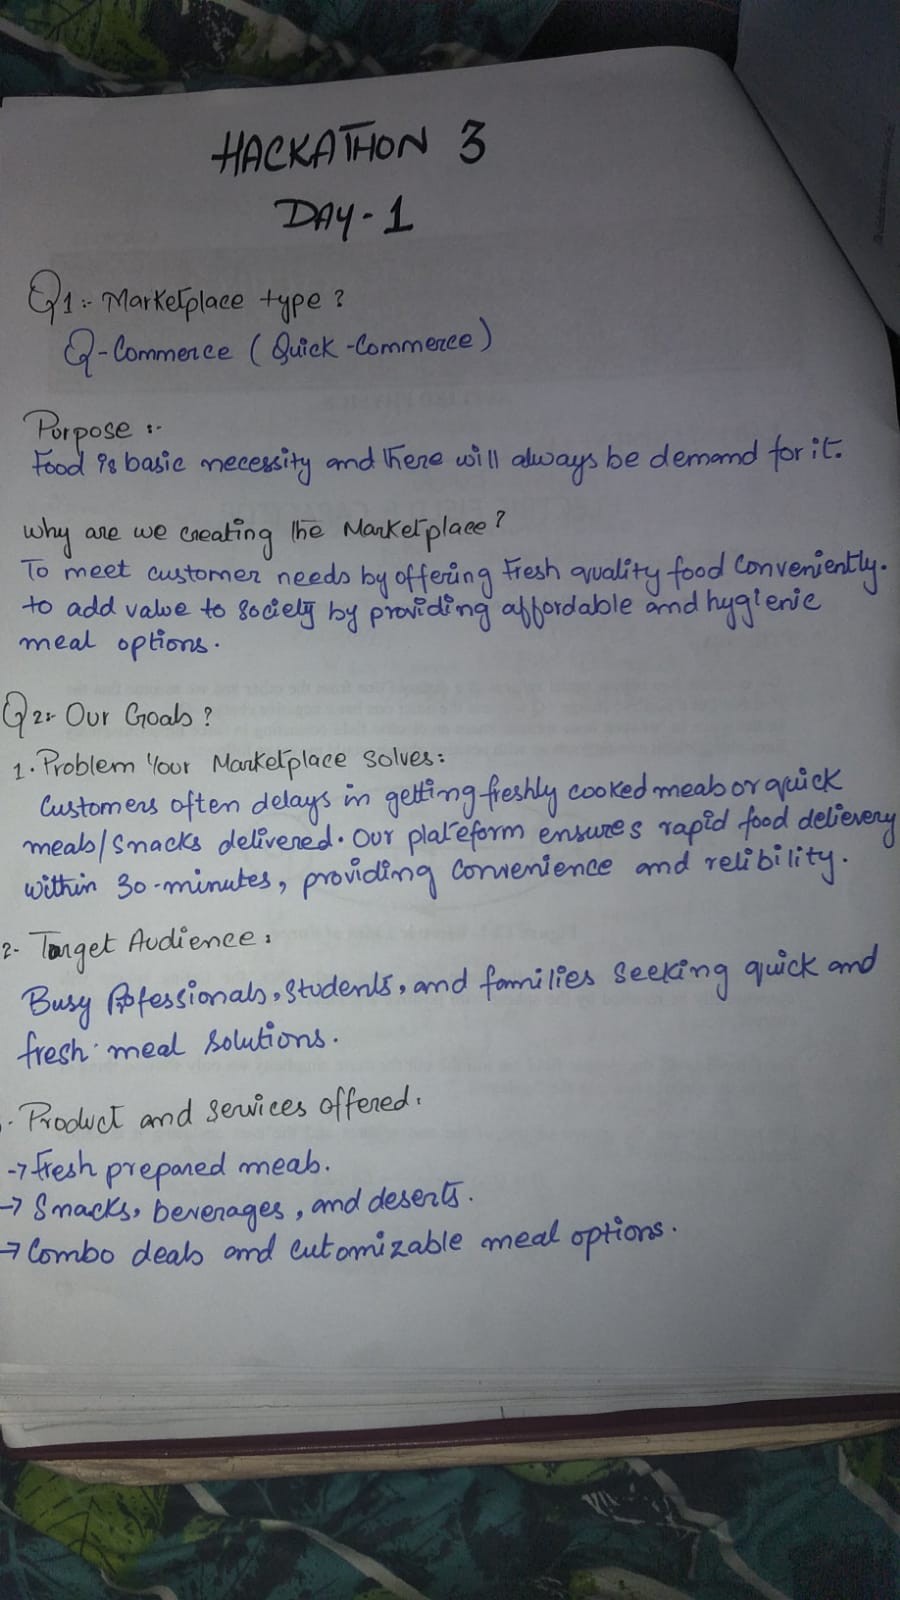 HACKATHON 3
DAY-1
Q1:- Marketplace type?
Q-Commerce (Quick-Commerce)
Purpose :-
Food is basic necessity and there will always be demand for it.
Why are we creating the Marketplace?
To meet customer needs by offering Fresh quality food conveniently.
to add value to society by providing affordable and hygienic
meal options.
Q2:- Our Goals?
1. Problem Your Marketplace Solves:
Customers often delays in getting freshly cooked meals or quick
meals/Snacks delivered. Our plateform ensures rapid food delievery
within 30-minutes, providing convenience and relibility.
2- Target Audience:
Busy Professionals, Students, and families seeking quick and
fresh meal solutions.
- Product and services offered.
→ fresh prepared meals.
→ Snacks, beverages, and deserts.
→ Combo deals and cutomizable meal options.